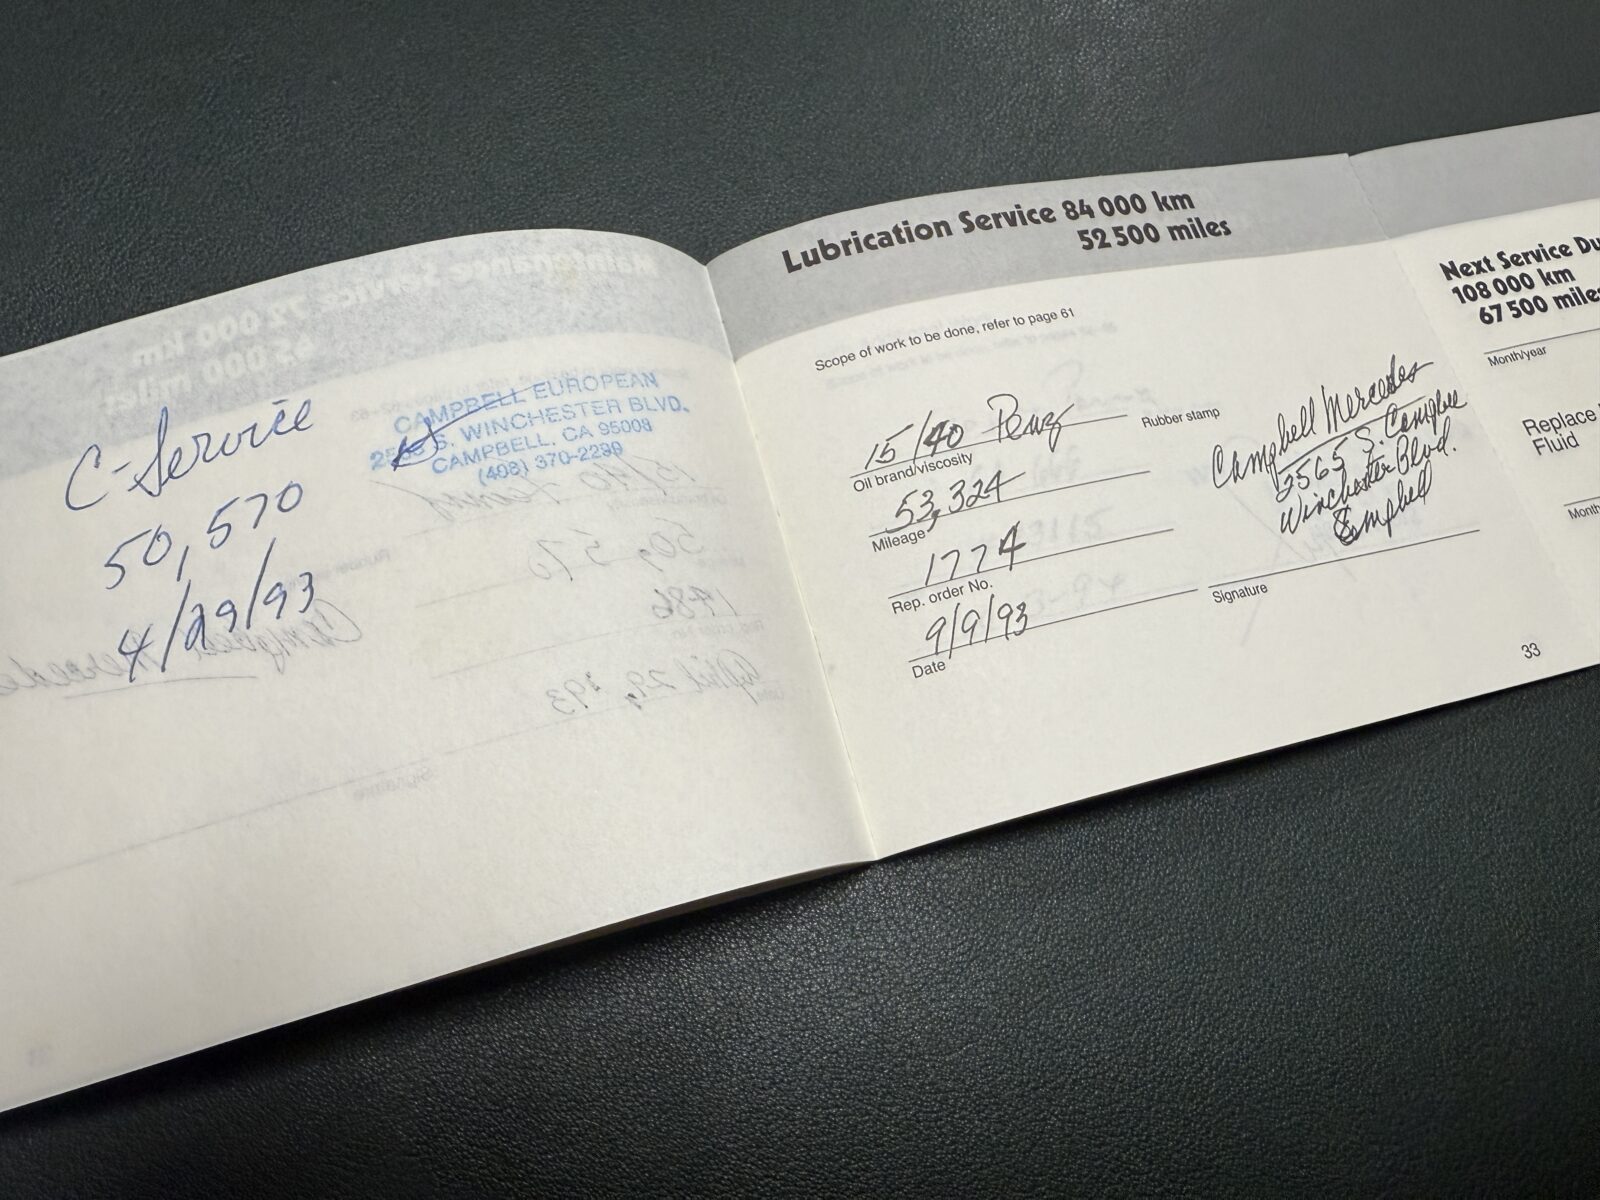 C-Service
50,570
4/29/93
CAMPBELL EUROPEAN
S. WINCHESTER BLVD.
CAMPBELL, CA 95008
(408) 370-2299
Lubrication Service 84 000 km
52 500 miles
Scope of work to be done, refer to page 61
15/40 Penz
Oil brand/viscosity
Rubber stamp
53,324
Mileage
1774
Rep. order No.
9/9/93
Date
Campbell Mercedes
2565 S. Campbell
Winchester Blvd.
Campbell
Signature
33
Next Service Du
108 000 km
67 500 miles
Month/year
Replace
Fluid
Month